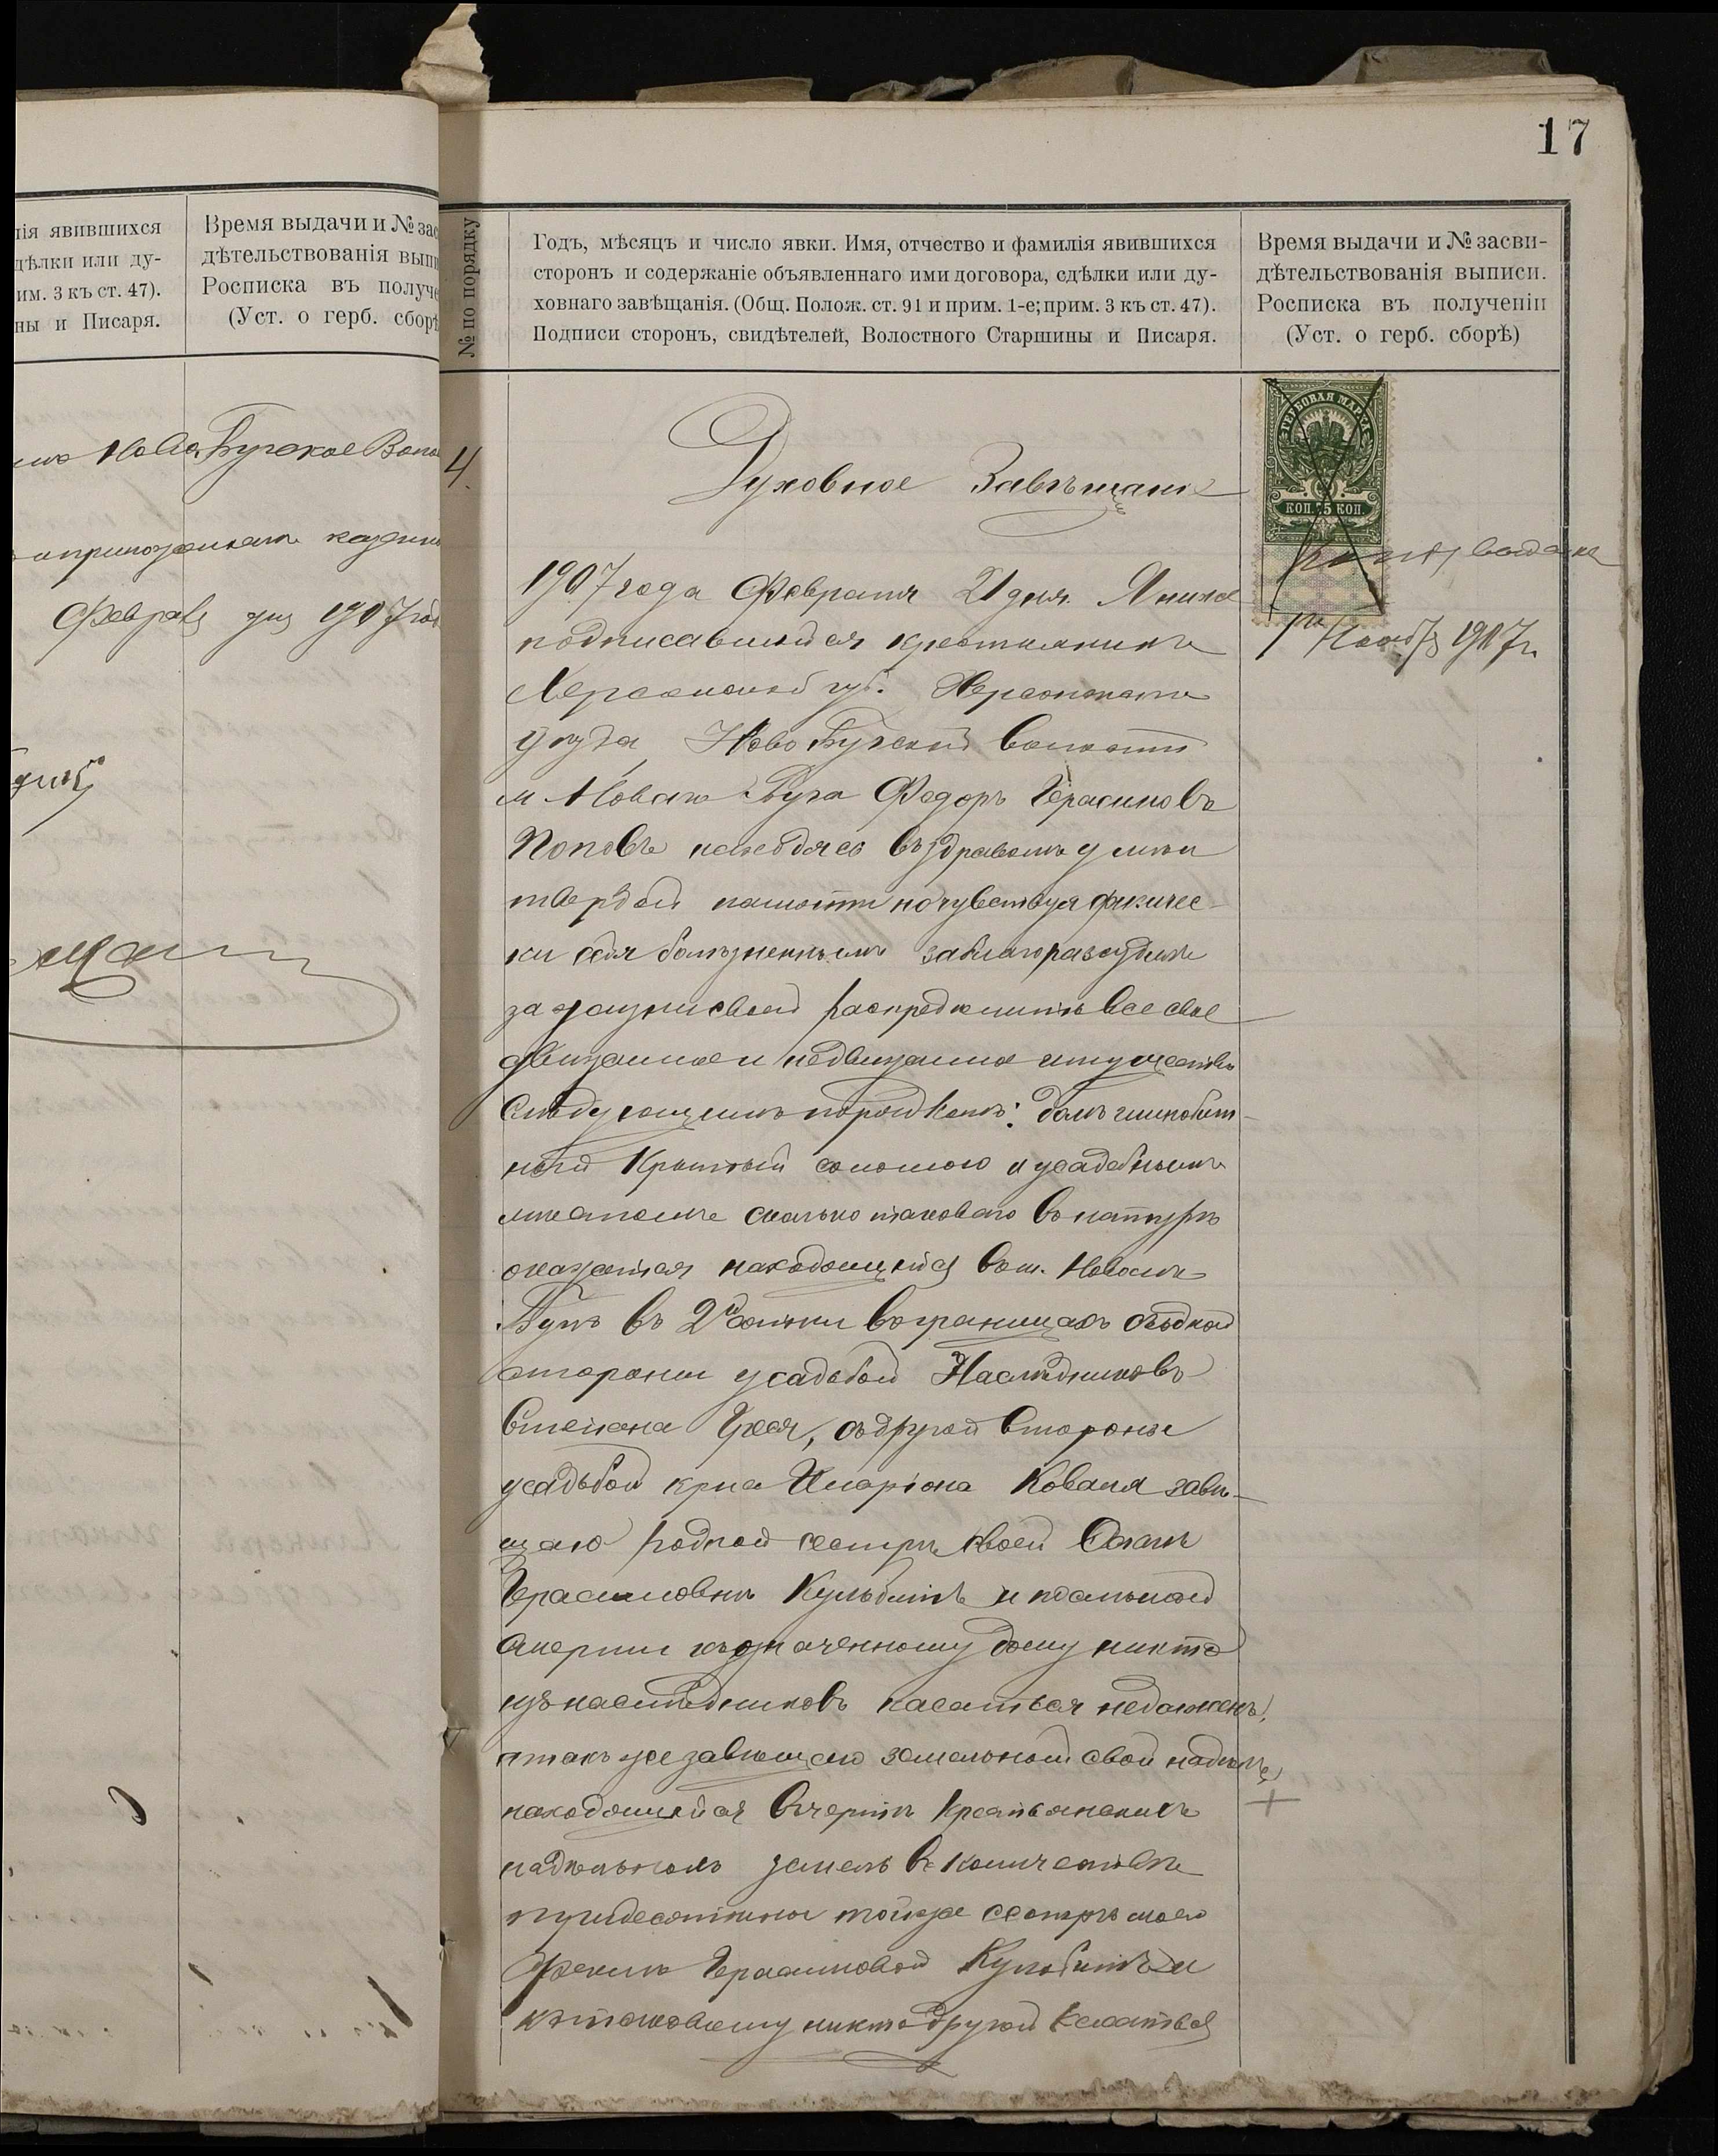 17
лія явившихся
дѣлки или ду-
им. 3 къ ст. 47).
ны и Писаря.
Время выдачи и № зас
дѣтельствованія вып
Росписка въ получе
(Уст. о герб. сборѣ
№ по порядку
Годъ, мѣсяцъ и число явки. Имя, отчество и фамилія явившихся
сторонъ и содержаніе объявленнаго ими договора, сдѣлки или ду-
ховнаго завѣщанія. (Общ. Полож. ст. 91 и прим. 1-е; прим. 3 къ ст. 47).
Подписи сторонъ, свидѣтелей, Волостного Старшины и Писаря.
Время выдачи и № засви-
дѣтельствованія выписи.
Росписка въ полученіи
(Уст. о герб. сборѣ)
Ново Бугское Воло
Февраля дня 1907 год
4.
Духовное Завѣщаніе
ГЕРБОВАЯ МАРКА
КОП. 75 КОП.
выдана
1907 г.
1907 года Февраля 21 дня. Я ниже
подписавшийся крестьянинъ
Херсонской губ. Херсонскаго
уѣзда, Ново Бугской волости
м. Новаго Буга Федоръ Герасимовъ
Поповъ находясь въ здравомъ умѣ и
твердой памяти но чувствуя физичес-
ки себя болѣзненнымъ заблагоразсудилъ
за жизни своей распредѣлить все свое
движимое и недвижимое имущество
Слѣдующимъ порядкомъ: домъ глинобит-
ный Крытый соломою и усадебнымъ
мѣстомъ сколько таковаго въ натурѣ
окажется находящийся въ м. Новомъ
Бугѣ въ 2й части въ границахъ съ одной
стороны усадьбой Наслѣдниковъ
Степана Гуся, съ другой стороны
усадьбой крна Иларіона Коваля завѣ-
щаю родной сестрѣ своей
Герасимовнѣ Кульбитѣ и по
смерти къ означенному дому никто
изъ наслѣдниковъ касаться недолженъ,
а также завѣщаю земельный свой надѣлъ
находящийся въ чертѣ Крестьянскихъ
надѣльныхъ земель въ количествѣ
десятины той же сестрѣ моей
Герасимовой Кульбитѣ и
къ таковому никто другой касаться